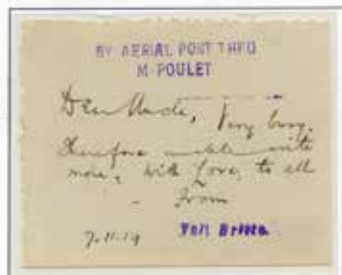 BY AERIAL POST THRO
M. POULET
Dear Uncle, Very busy,
therefore unable write
more, with love, to all
From
7.11.19